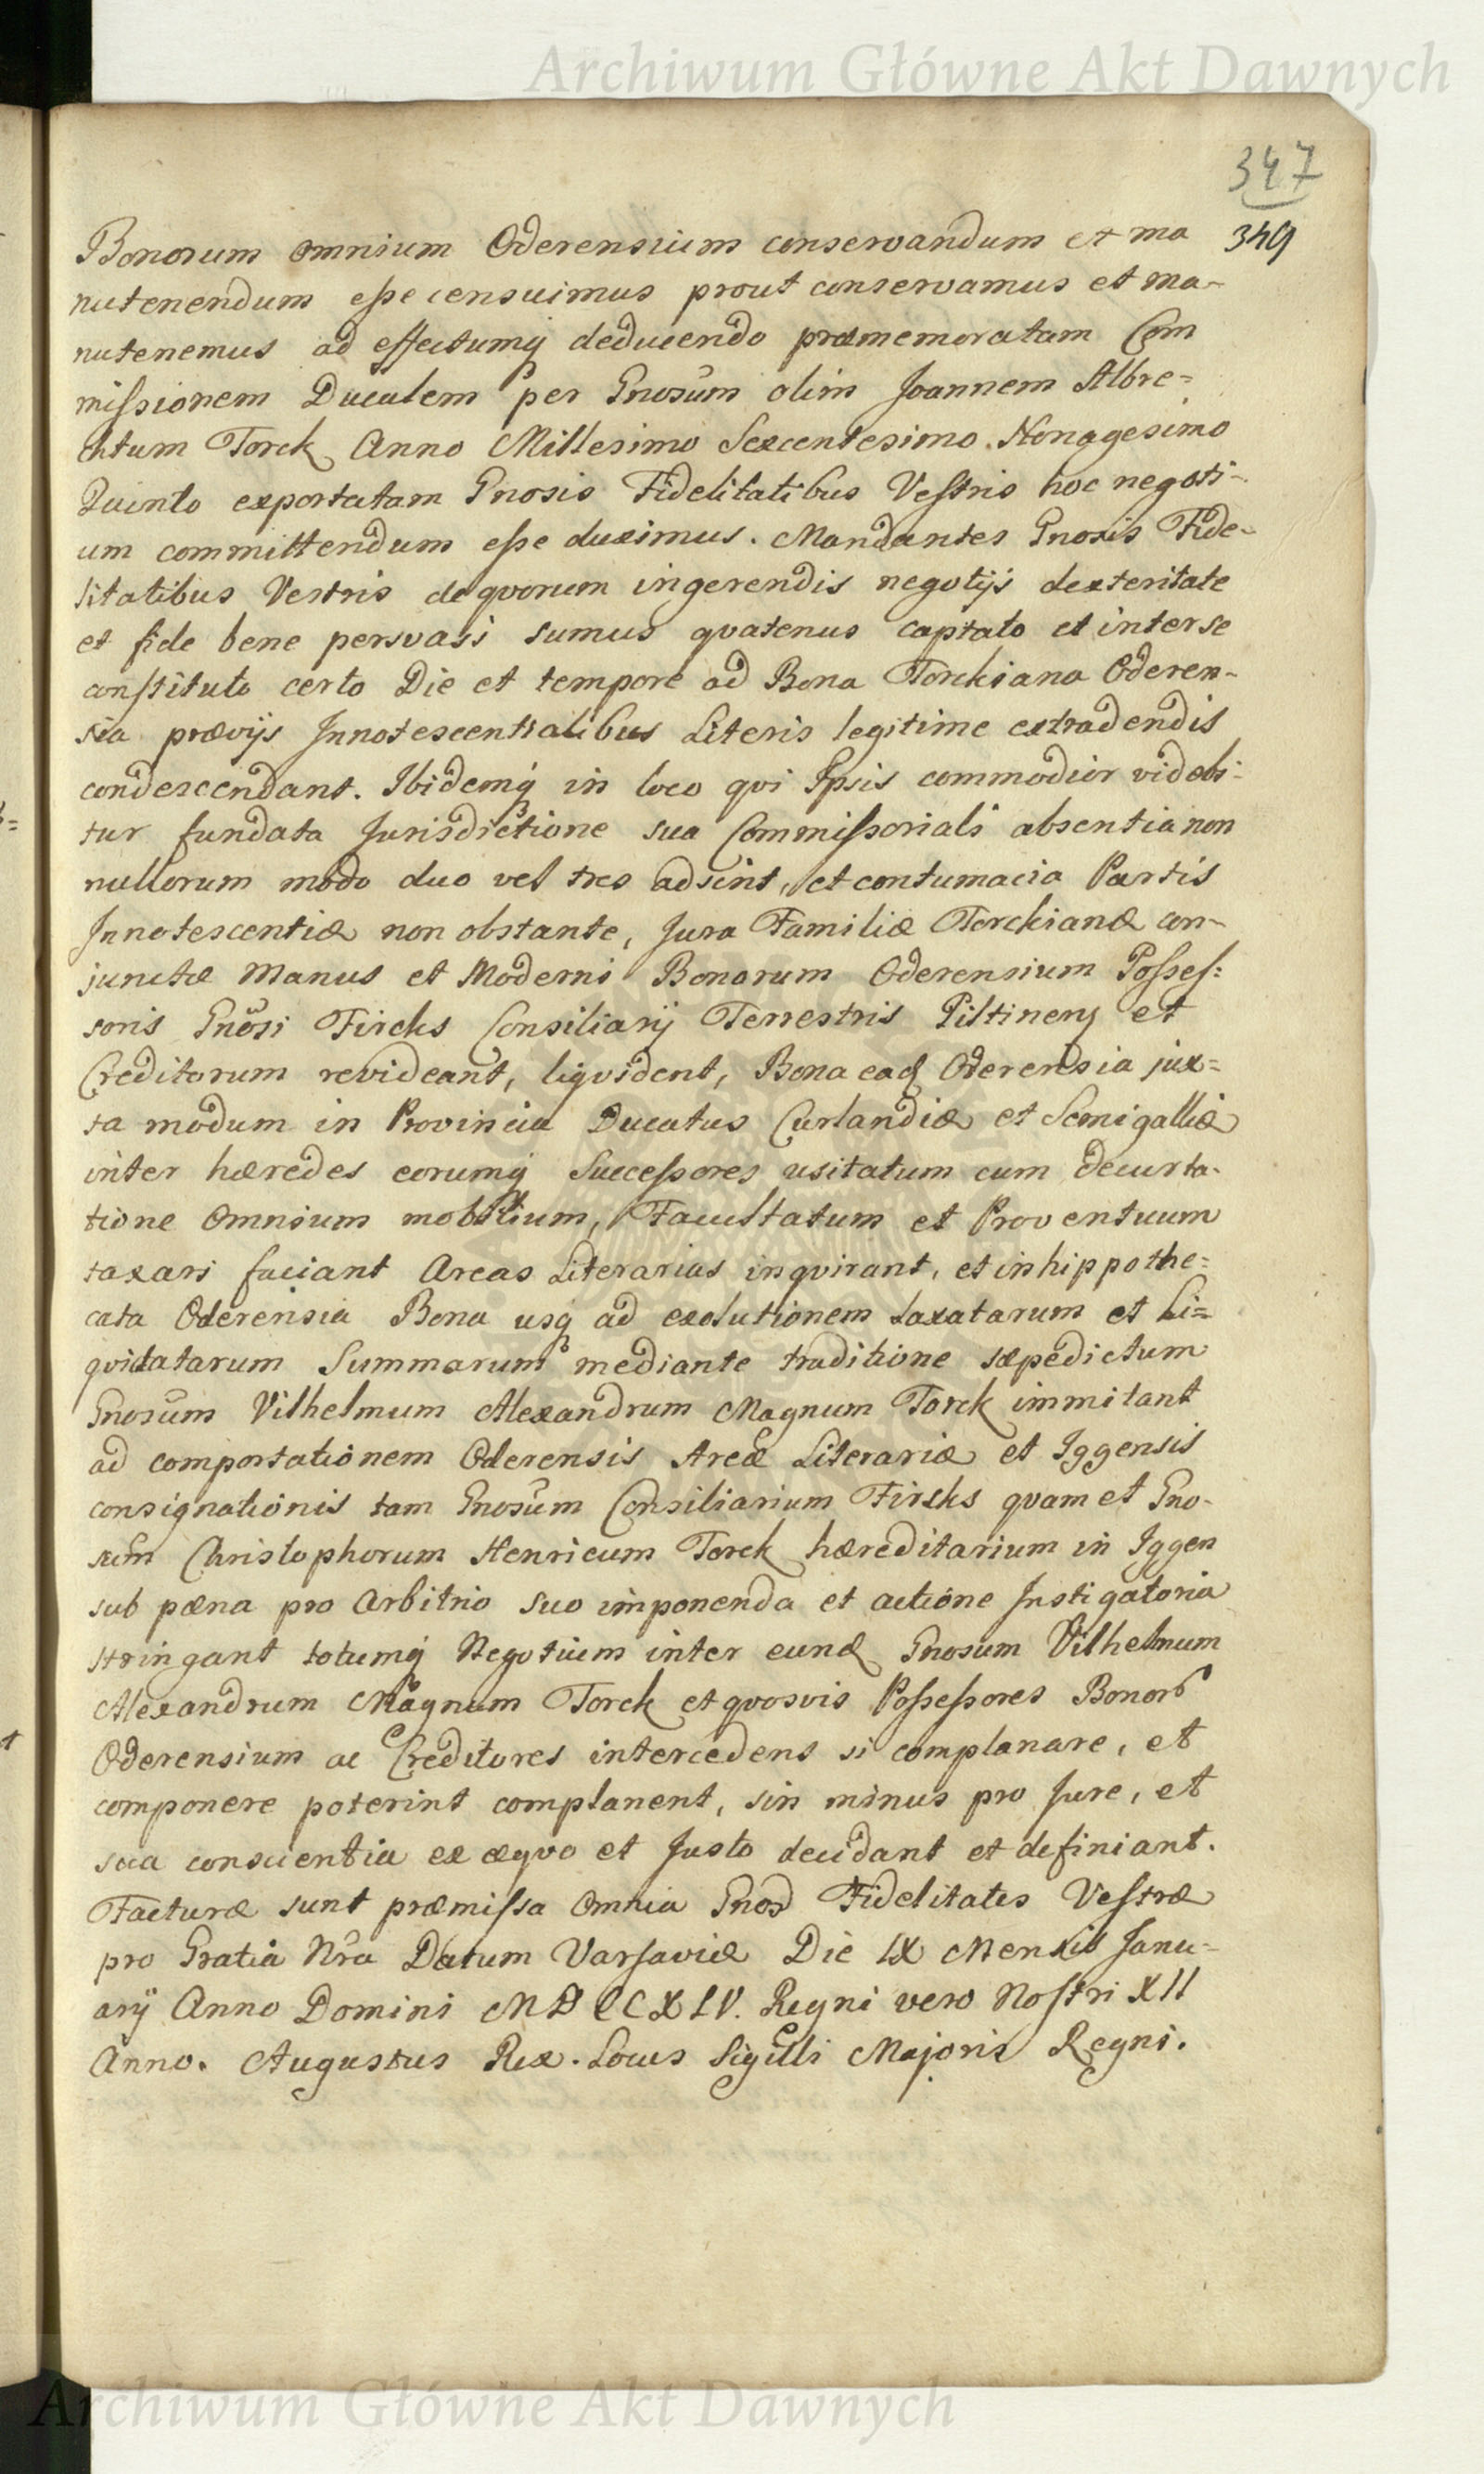 Archiwum Główne Akt Dawnych
347
349
Bonorum omnium Oderensium conservandum et ma
nutenendum eſse censuimus prout conservamus et ma-
nutenemus ad effectumq́ deducendo præmemoratam Com
miſsionem Ducalem per Gnosūm olim Joannem Albre=
chtum Torck Anno Millesimo Sexcentesimo Nonagesimo
Quinto exportatam Gnosis Fidelitatibus Veſtris hoc negoti-
um committendum eſse duximus. Mandantes Gnosis Fide-
litatibus Vestris de qvorum ingerendis negotijs dexteritate
et fide bene persvasi sumus qvatenus captato et inter se
conſtituto certo Die et tempore ad Bona Torckiana Oderen-
sia prævijs Innotescentialibus Literis legitime extradendis
condescendant. Ibidemq́ in loco qvi Ipsis commodior videbi-
tur fundata Jurisdictione sua Commiſsoriali absentia non
nullorum modo duo vel tres adsint, et contumacia Partis
Innotescentiæ non obstante, Jura Familiæ Torckianæ con-
junctæ Manus et Moderni Bonorum Oderensium Poſseſ=
soris Gnōsi Fircks Consiliarij Terrestris Piltinenȝ et
Creditorum revideant, liqvident, Bona eaq Oderensia jux=
ta modum in Provincia Ducatus Curlandiæ et Semigalliæ
inter hæredes eorumq́ Succeſsores usitatum cum decurta-
tione Omnium mobilium, Facultatum et Proventuum
taxari faciant Arcas Literarias inqvirant, et in hippothe=
cata Oderensia Bona usq́ ad exolutionem taxatarum et Li=
qvidatarum Summarum mediante traditione sæpedictum
Gnosūm Vilhelmum Alexandrum Magnum Torck immitant
ad comportationem Oderensis Arcæ Literariæ et Iggensis
consignationis tam Gnosūm Consiliarium Fircks qvam et Gno-
sūm Christophorum Henricum Torck hæreditarium in Iggen
sub pæna pro Arbitrio suo imponenda et actione Instigatoria
stringant totumq́ Negotium inter eund Gnosum Vilhelmum
Alexandrum Magnum Torck et qvosvis Poſseſsores Bonor
Oderensium ac Creditores intercedens si complanare, et
componere poterint complanent, sin minus pro Jure, et
sua conscientia ex æqvo et Justo decidant et definiant.
Facturæ sunt præmiſsa Omnia Gnos Fidelitates Veſtræ
pro Gratia Nr̄a Datum Varſaviæ Die IX Mensis Janu-
arij Anno Domini MDCCXLV. Regni vero Noſtri XII
Anno. Augustus Rex. Locus Sigilli Majoris Regni.
Archiwum Główne Akt Dawnych